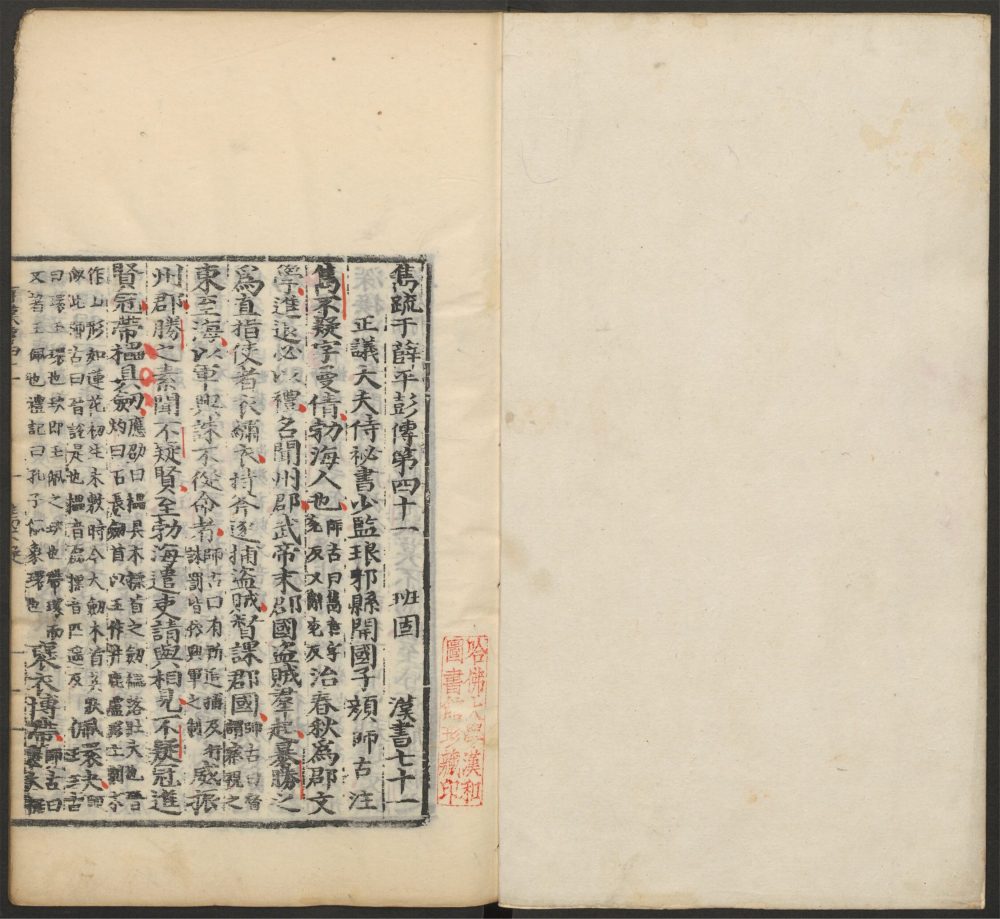 雋疏于薛平彭傳第四十一　班固　漢書七十一
正議大夫侍祕書少監琅邪縣開國子顏師古注
雋不疑字曼倩勃海人也師古曰雋音字兗反又辭兗反治春秋爲郡文
學進退必以禮名聞州郡武帝末郡國盜賊羣起暴勝之
爲直指使者衣繡衣持斧逐捕盜賊督課郡國師古曰督謂察視之
東至海以軍興誅不從命者師古曰有所追捕及行誅罰皆依興軍之制威振
州郡勝之素聞不疑賢至勃海遣吏請與相見不疑冠進
賢冠帶櫑具劒應劭曰櫑具木摽首之劒櫑落壯大也晉灼曰古長劒首以玉作井鹿盧形上刻木
作山形如蓮花初生未敷時今大劒木首其狀似此師古曰晉說是也櫑音磊摽音匹遙反佩環玦師古
曰環玉環也玦即玉佩之玦也帶環而又著玉佩也禮記曰孔子佩象環也襃衣博帶師古曰
哈佛大學漢和
圖書館珍藏印